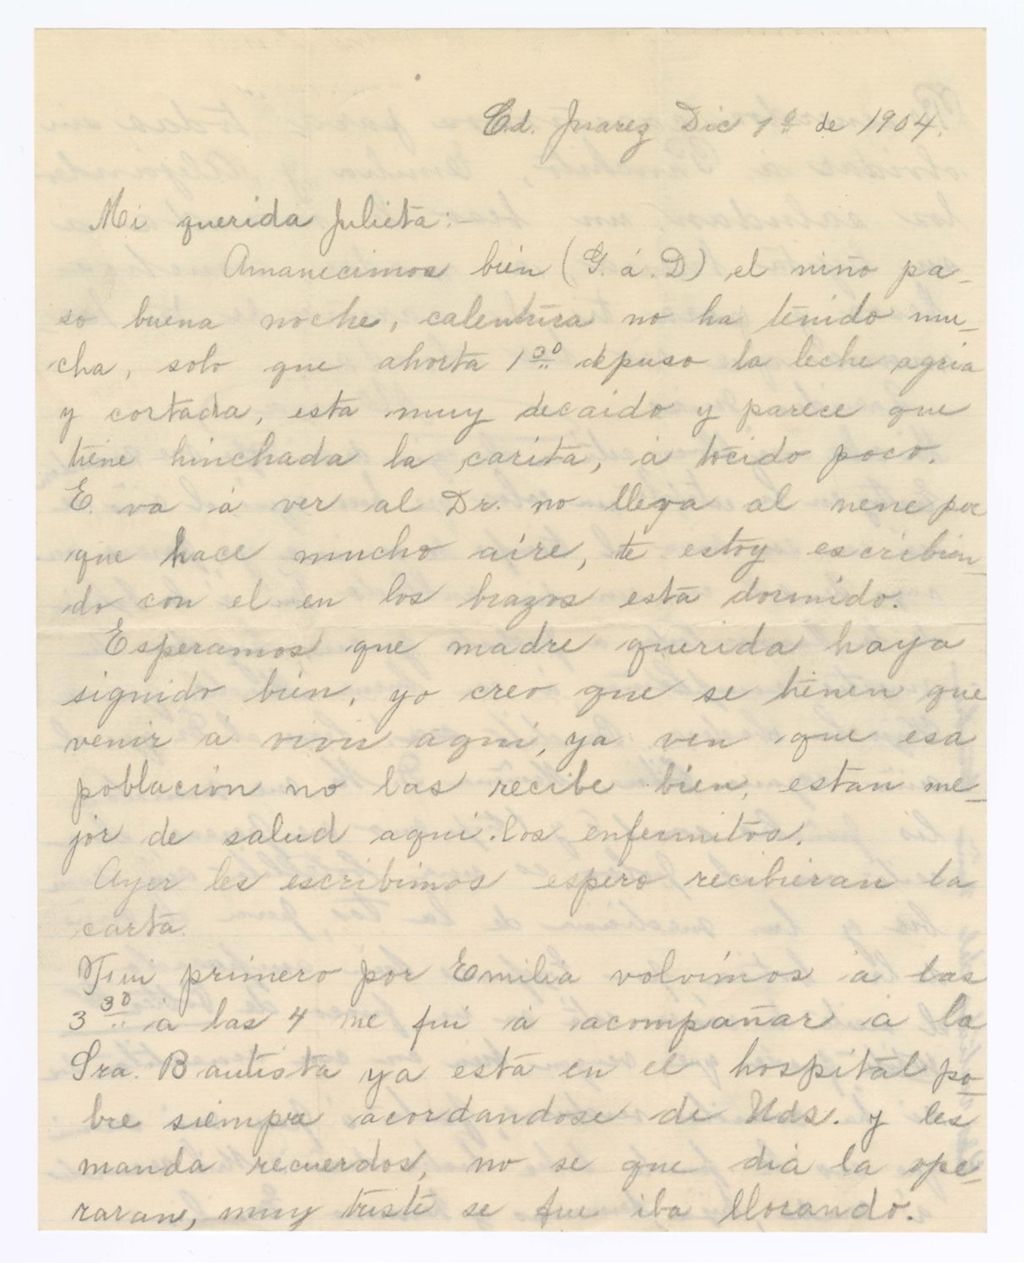 Cd. Juarez Dic 1º de 1904.
Mi querida Julieta:
Amanecimos bien (G. á. D) el niño pa-
so buena noche, calentura no ha tenido mu-
cha, solo que ahorta 1 30 depuso la leche agria
y cortada, esta muy decaido y parece que
tiene hinchada la carita, á tocido poco.
E. va á ver al Dr. no lleva al nene por
que hace mucho aire, te estoy escribien-
do con el en los brazos esta dormido.
Esperamos que madre querida haya
siguido bien, yo creo que se tienen que
venir á vivir aqui, ya ven que esa
población no las recibe bien, estan me-
jor de salud aqui. los enfermitos.
Ayer les escribimos espero recibieran la
carta.
Fui primero por Emilia volvimos á las
3 30 á las 4 me fui á acompañar á la
Sra. Bautista ya está en el hospital po-
bre siempre acordandose de Uds. y les
manda recuerdos, no se que dia la ope-
raran, muy triste se fue iba llorando.